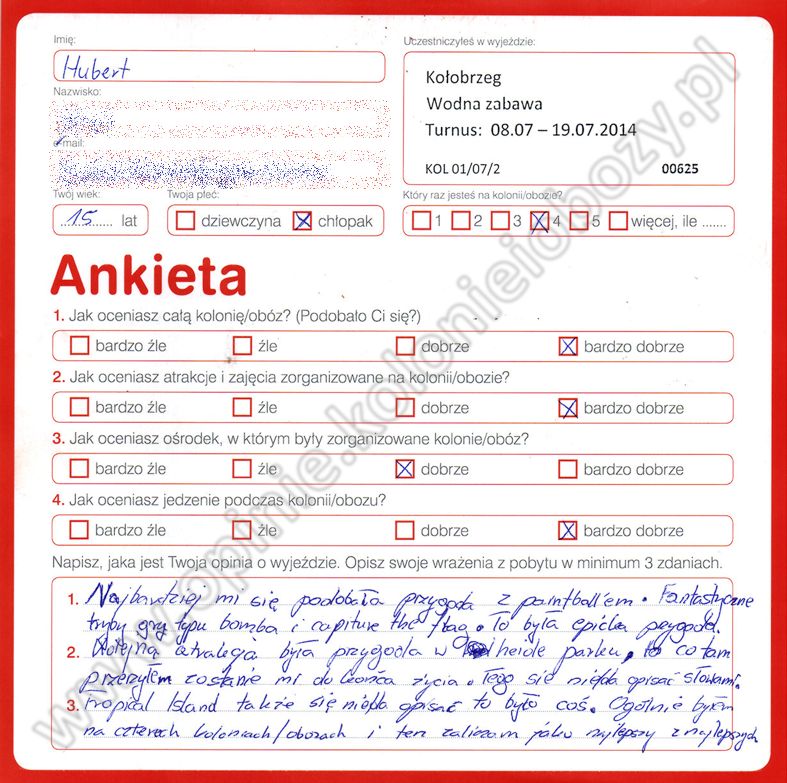 Imię:
Hubert
Uczestniczyłeś w wyjeździe:
Kołobrzeg
Wodna zabawa
Turnus: 08.07 – 19.07.2014
KOL 01/07/2 00625
Nazwisko:
e-mail:
Twój wiek:
15 lat
Twoja płeć:
dziewczyna chłopak
Który raz jesteś na kolonii/obozie?
1 2 3 4 5 więcej, ile .......
Ankieta
1. Jak oceniasz całą kolonię/obóz? (Podobało Ci się?)
bardzo źle źle dobrze bardzo dobrze
2. Jak oceniasz atrakcje i zajęcia zorganizowane na kolonii/obozie?
bardzo źle źle dobrze bardzo dobrze
3. Jak oceniasz ośrodek, w którym były zorganizowane kolonie/obóz?
bardzo źle źle dobrze bardzo dobrze
4. Jak oceniasz jedzenie podczas kolonii/obozu?
bardzo źle źle dobrze bardzo dobrze
Napisz, jaka jest Twoja opinia o wyjeździe. Opisz swoje wrażenia z pobytu w minimum 3 zdaniach.
1. Najbardziej mi się podobała przygoda z paintball'em. Fantastyczne
tryby gry typu bomba i capiture the flag. To była epicka przygoda.
2. Kolejną atrakcją była przygoda w heide parku, to co tam
przeżyłem zostanie mi do końca życia. Tego się nieda opisać słowami.
3. Tropical Island także się nieda opisać to było coś. Ogólnie byłem
na czterech koloniach/obozach i ten zaliczam jako najlepszy z najlepszych
www.opinie.kolonieiobozy.pl